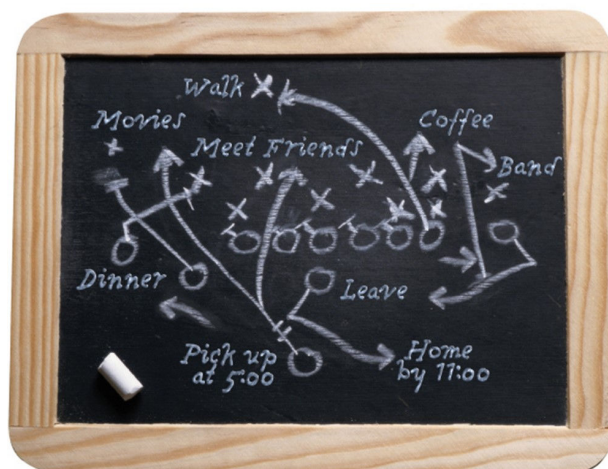 Walk
Movies
Coffee
Meet Friends
Band
Dinner
Leave
Pick up
at 5:00
Home
by 11:00